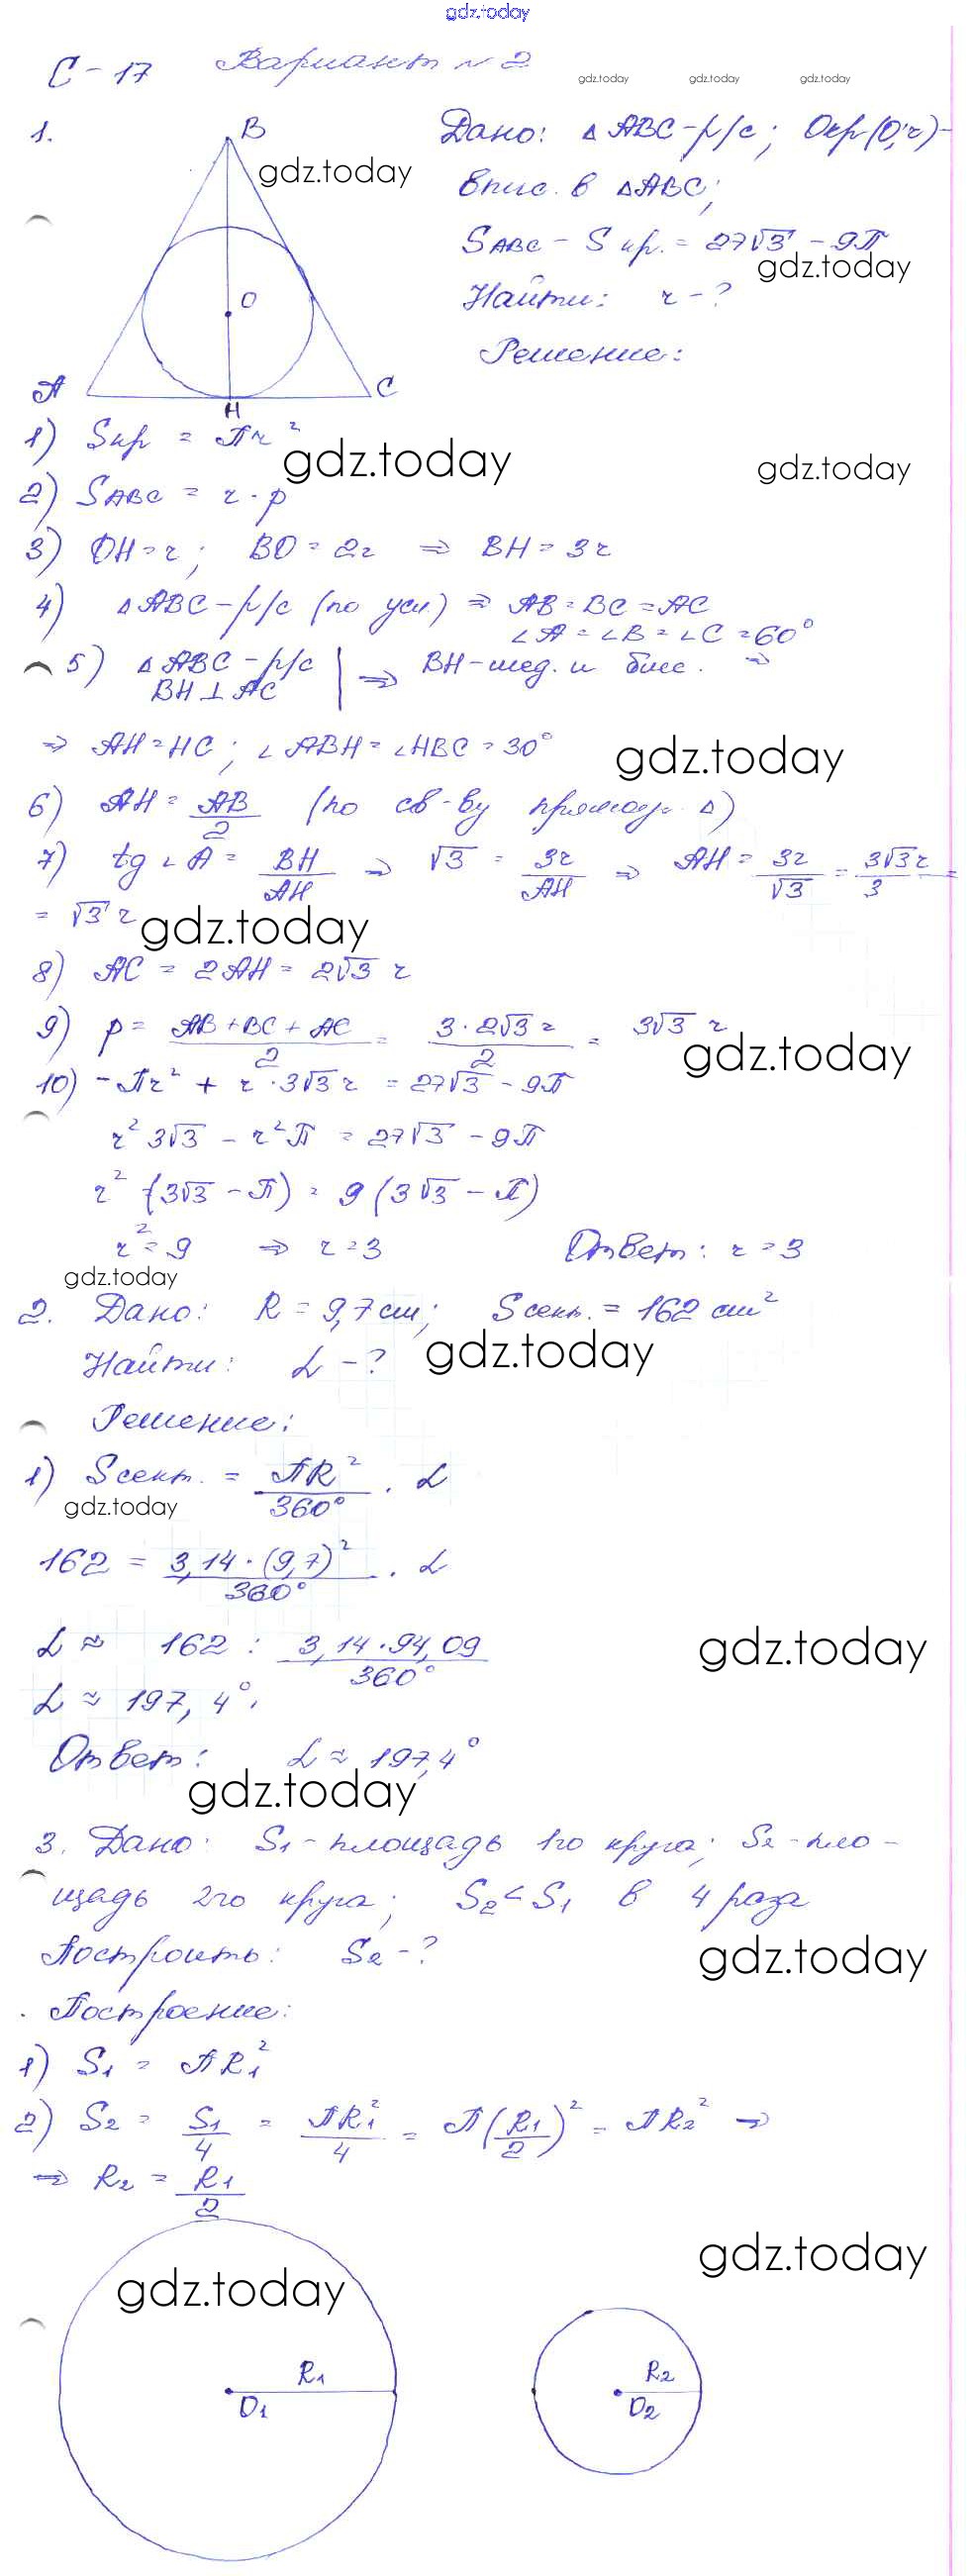 gdz.today
С-17 Вариант №2
gdz.today gdz.today gdz.today
1.
B
O
A
H
C
gdz.today
Дано: △ABC-р/с; Окр(O;r)-
впис. в △ABC;
SABC - Sкр. = 27√3 - 9П
gdz.today
Найти: r-?
Решение:
1) Sкр = Пr²
gdz.today gdz.today
2) SABC = r·p
3) OH=r; BO=2r ⇒ BH=3r
4) △ABC-р/с (по усл.) ⇒ AB=BC=AC
∠A=∠B=∠C=60°
5) △ABC-р/с
BH⊥AC | ⇒ BH-мед. и бисс. ⇒
⇒ AH=HC; ∠ABH=∠HBC=30°
gdz.today
6) AH = AB/2 (по св-ву прямоуг. △)
7) tg∠A = BH/AH ⇒ √3 = 3r/AH ⇒ AH = 3r/√3 = 3√3r/3 =
= √3 r
gdz.today
8) AC = 2AH = 2√3 r
9) p = AB+BC+AC/2 = 3·2√3 r/2 = 3√3 r
gdz.today
10) -Пr² + r·3√3 r = 27√3 - 9П
r² 3√3 - r² П = 27√3 - 9П
r² (3√3 - П) = 9 (3√3 - П)
r² = 9 ⇒ r=3 Ответ: r=3
gdz.today
2. Дано: R = 9,7 см; Sсект. = 162 см²
Найти: α-?
gdz.today
Решение:
1) Sсект. = ПR²/360° · α
gdz.today
162 = 3,14·(9,7)²/360° · α
α ≈ 162 : 3,14·94,09/360°
gdz.today
α ≈ 197,4°.
Ответ: α ≈ 197,4°
gdz.today
3. Дано: S1-площадь 1го круга; S2-пло-
щадь 2го круга; S2<S1 в 4 раза
Построить: S2-?
gdz.today
Построение:
1) S1 = ПR1²
2) S2 = S1/4 = ПR1²/4 = П(R1/2)² = ПR2² ⇒
⇒ R2 = R1/2
gdz.today
gdz.today
R1
O1
R2
O2